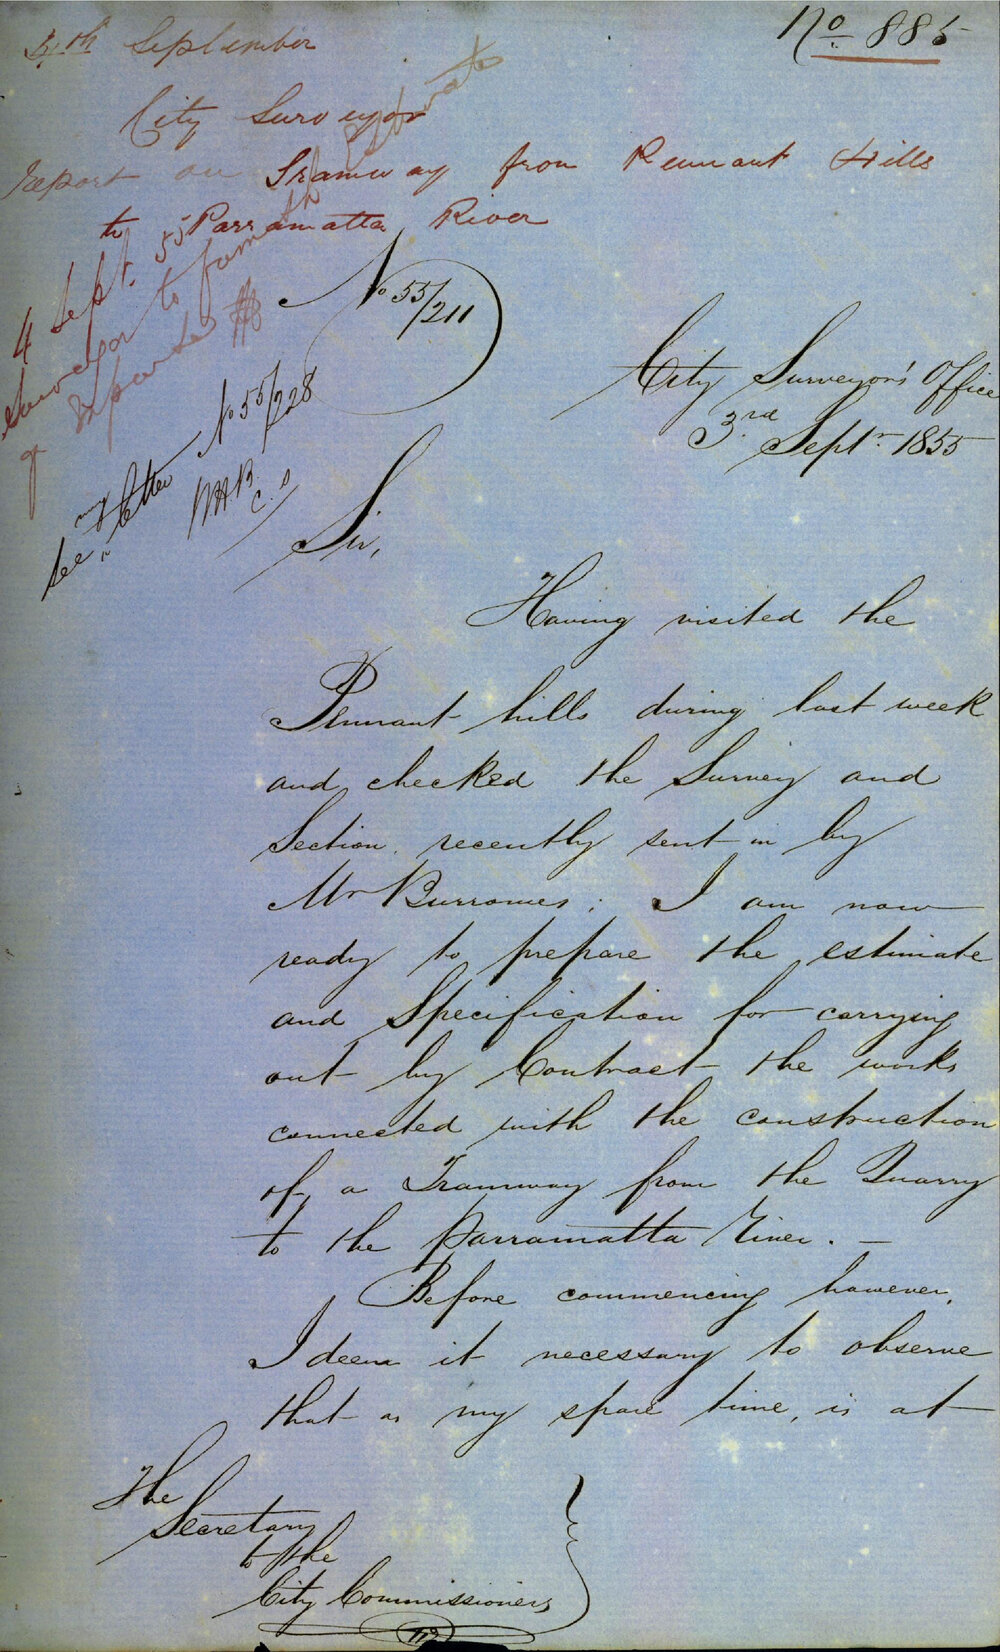 No 885
4th September
City Surveyor
Report on Tramway from Pennant Hills
to Parramatta River
4 Sept. 55
Surveyor to furnish Estimate
of Expense
No 55/211
See my letter No 55/228
C.S
City Surveyor's Office
3rd Septr 1855
Sir,
Having visited the
Pennant hills during last week
and checked the Survey and
Section recently sent in by
Mr Burrowes; I am now
ready to prepare the estimate
and Specification for carrying
out by Contract the works
connected with the construction
of a Tramway from the Quarry
to the Parramatta River. —
Before commencing however,
I deem it necessary to observe
that as my spare time, is at
The
Secretary
to the
City Commissioners